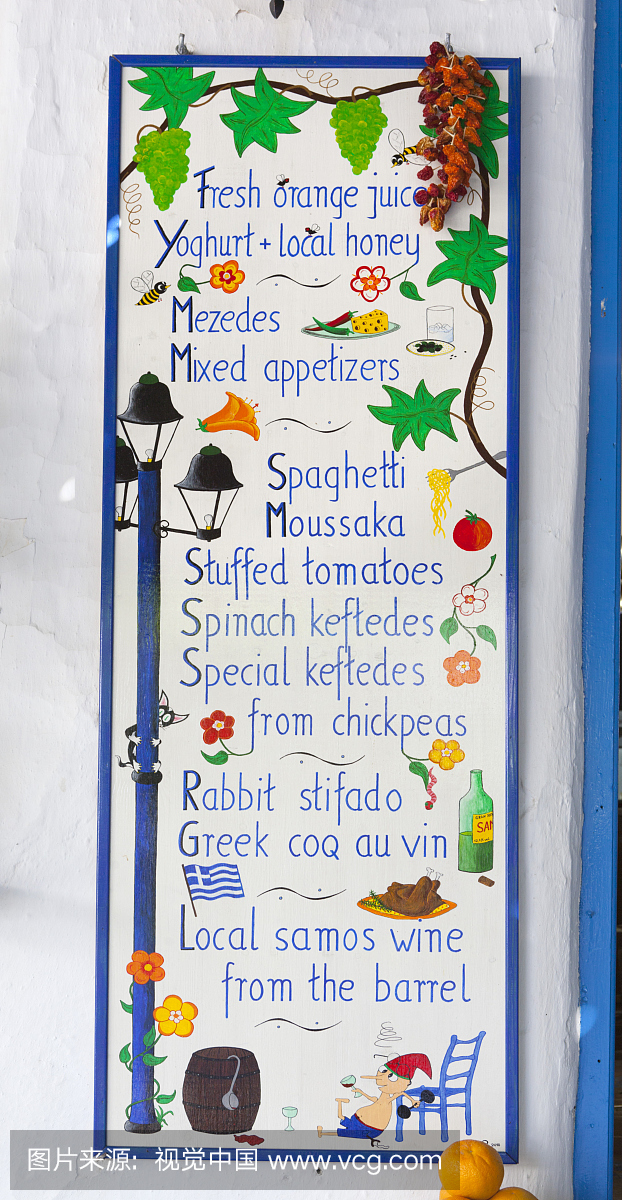 Fresh orange juice
Yoghurt + local honey
Mezedes
Mixed appetizers
Spaghetti
Moussaka
Stuffed tomatoes
Spinach keftedes
Special keftedes
from chickpeas
Rabbit stifado
Greek coq au vin
SAM
Local samos wine
from the barrel
图片来源: 视觉中国 www.vcg.com